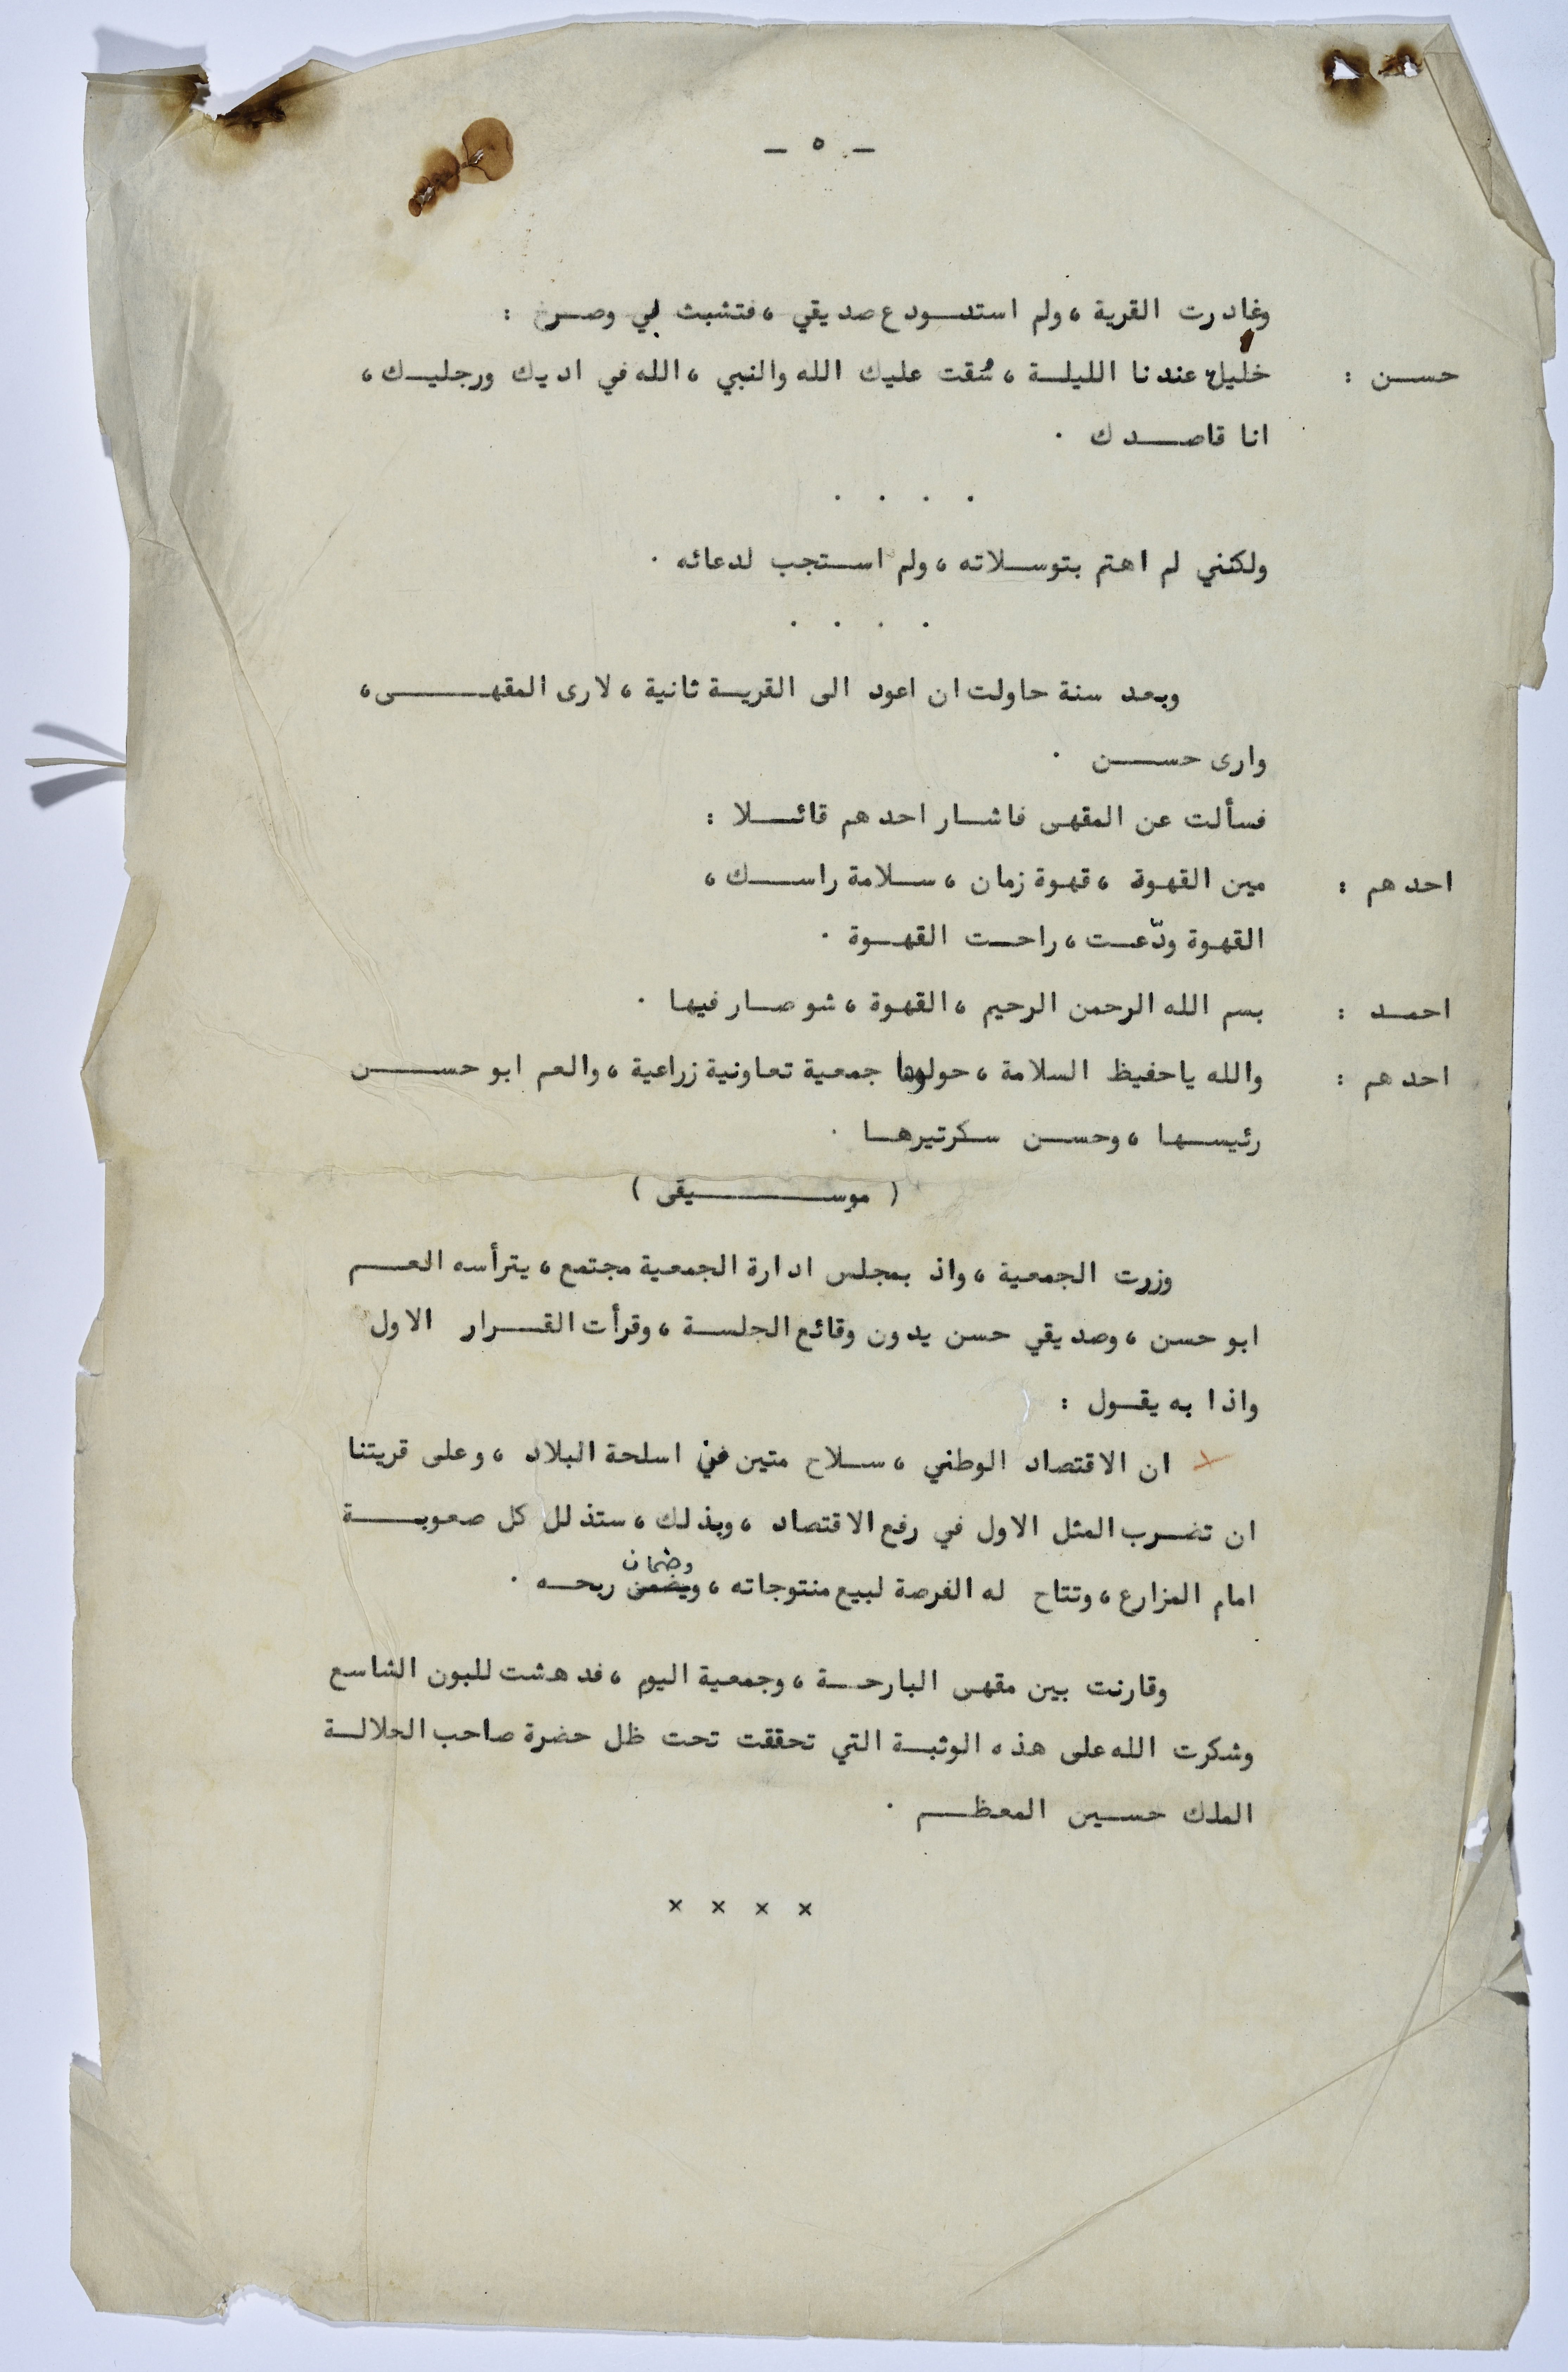 — ٥ —
وغادرت القرية ، ولم استودع صديقي ، فتشبث بي وصرخ :
حسن : خليك عندنا الليلة ، سُقت عليك الله والنبي ، الله في اديك ورجليك ،
انا قاصدك .
. . . .
ولكنني لم اهتم بتوسلاته ، ولم استجب لدعائه .
. . . .
وبعد سنة حاولت ان اعود الى القرية ثانية ، لارى المقهى ،
وارى حسن .
فسألت عن المقهى فاشار احدهم قائلا :
احدهم : مين القهوة ، قهوة زمان ، سلامة راسك ،
القهوة ودّعت ، راحت القهوة .
احمد : بسم الله الرحمن الرحيم ، القهوة ، شو صار فيها .
احدهم : والله ياحفيظ السلامة ، حولوها جمعية تعاونية زراعية ، والعم ابو حسن
رئيسها ، وحسن سكرتيرها .
( موسيقى )
وزرت الجمعية ، واذ بمجلس ادارة الجمعية مجتمع ، يترأسه العم
ابو حسن ، وصديقي حسن يدون وقائع الجلسة ، وقرأت القرار الاول
واذا به يقول :
ان الاقتصاد الوطني ، سلاح متين من اسلحة البلاد ، وعلى قريتنا
ان تضرب المثل الاول في رفع الاقتصاد ، وبذلك ، ستذلل كل صعوبة
وضمان
امام المزارع ، وتتاح له الفرصة لبيع منتوجاته ، ويضمن ربحه .
وقارنت بين مقهى البارحة ، وجمعية اليوم ، فدهشت للبون الشاسع
وشكرت الله على هذه الوثبة التي تحققت تحت ظل حضرة صاحب الجلالة
الملك حسين المعظم .
× × × ×